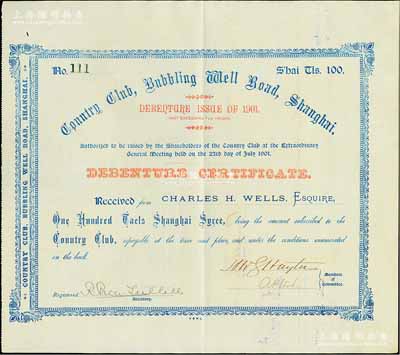 No. 111
Shai Tls. 100.
Country Club, Bubbling Well Road, Shanghai.
DEBENTURE ISSUE OF 1901.
Authorized to be raised by the Shareholders of the Country Club at the Extraordinary
General Meeting held on the 23rd day of July 1901.
DEBENTURE CERTIFICATE.
Received from CHARLES H. WELLS, ESQUIRE,
One Hundred Taels Shanghai Sycee, being the amount subscribed to the
Country Club, repayable at the time and place, and under the conditions enumerated
on the back.
Members
of
Committee.
Registered
Secretary.
COUNTRY CLUB, BUBBLING WELL ROAD, SHANGHAI.